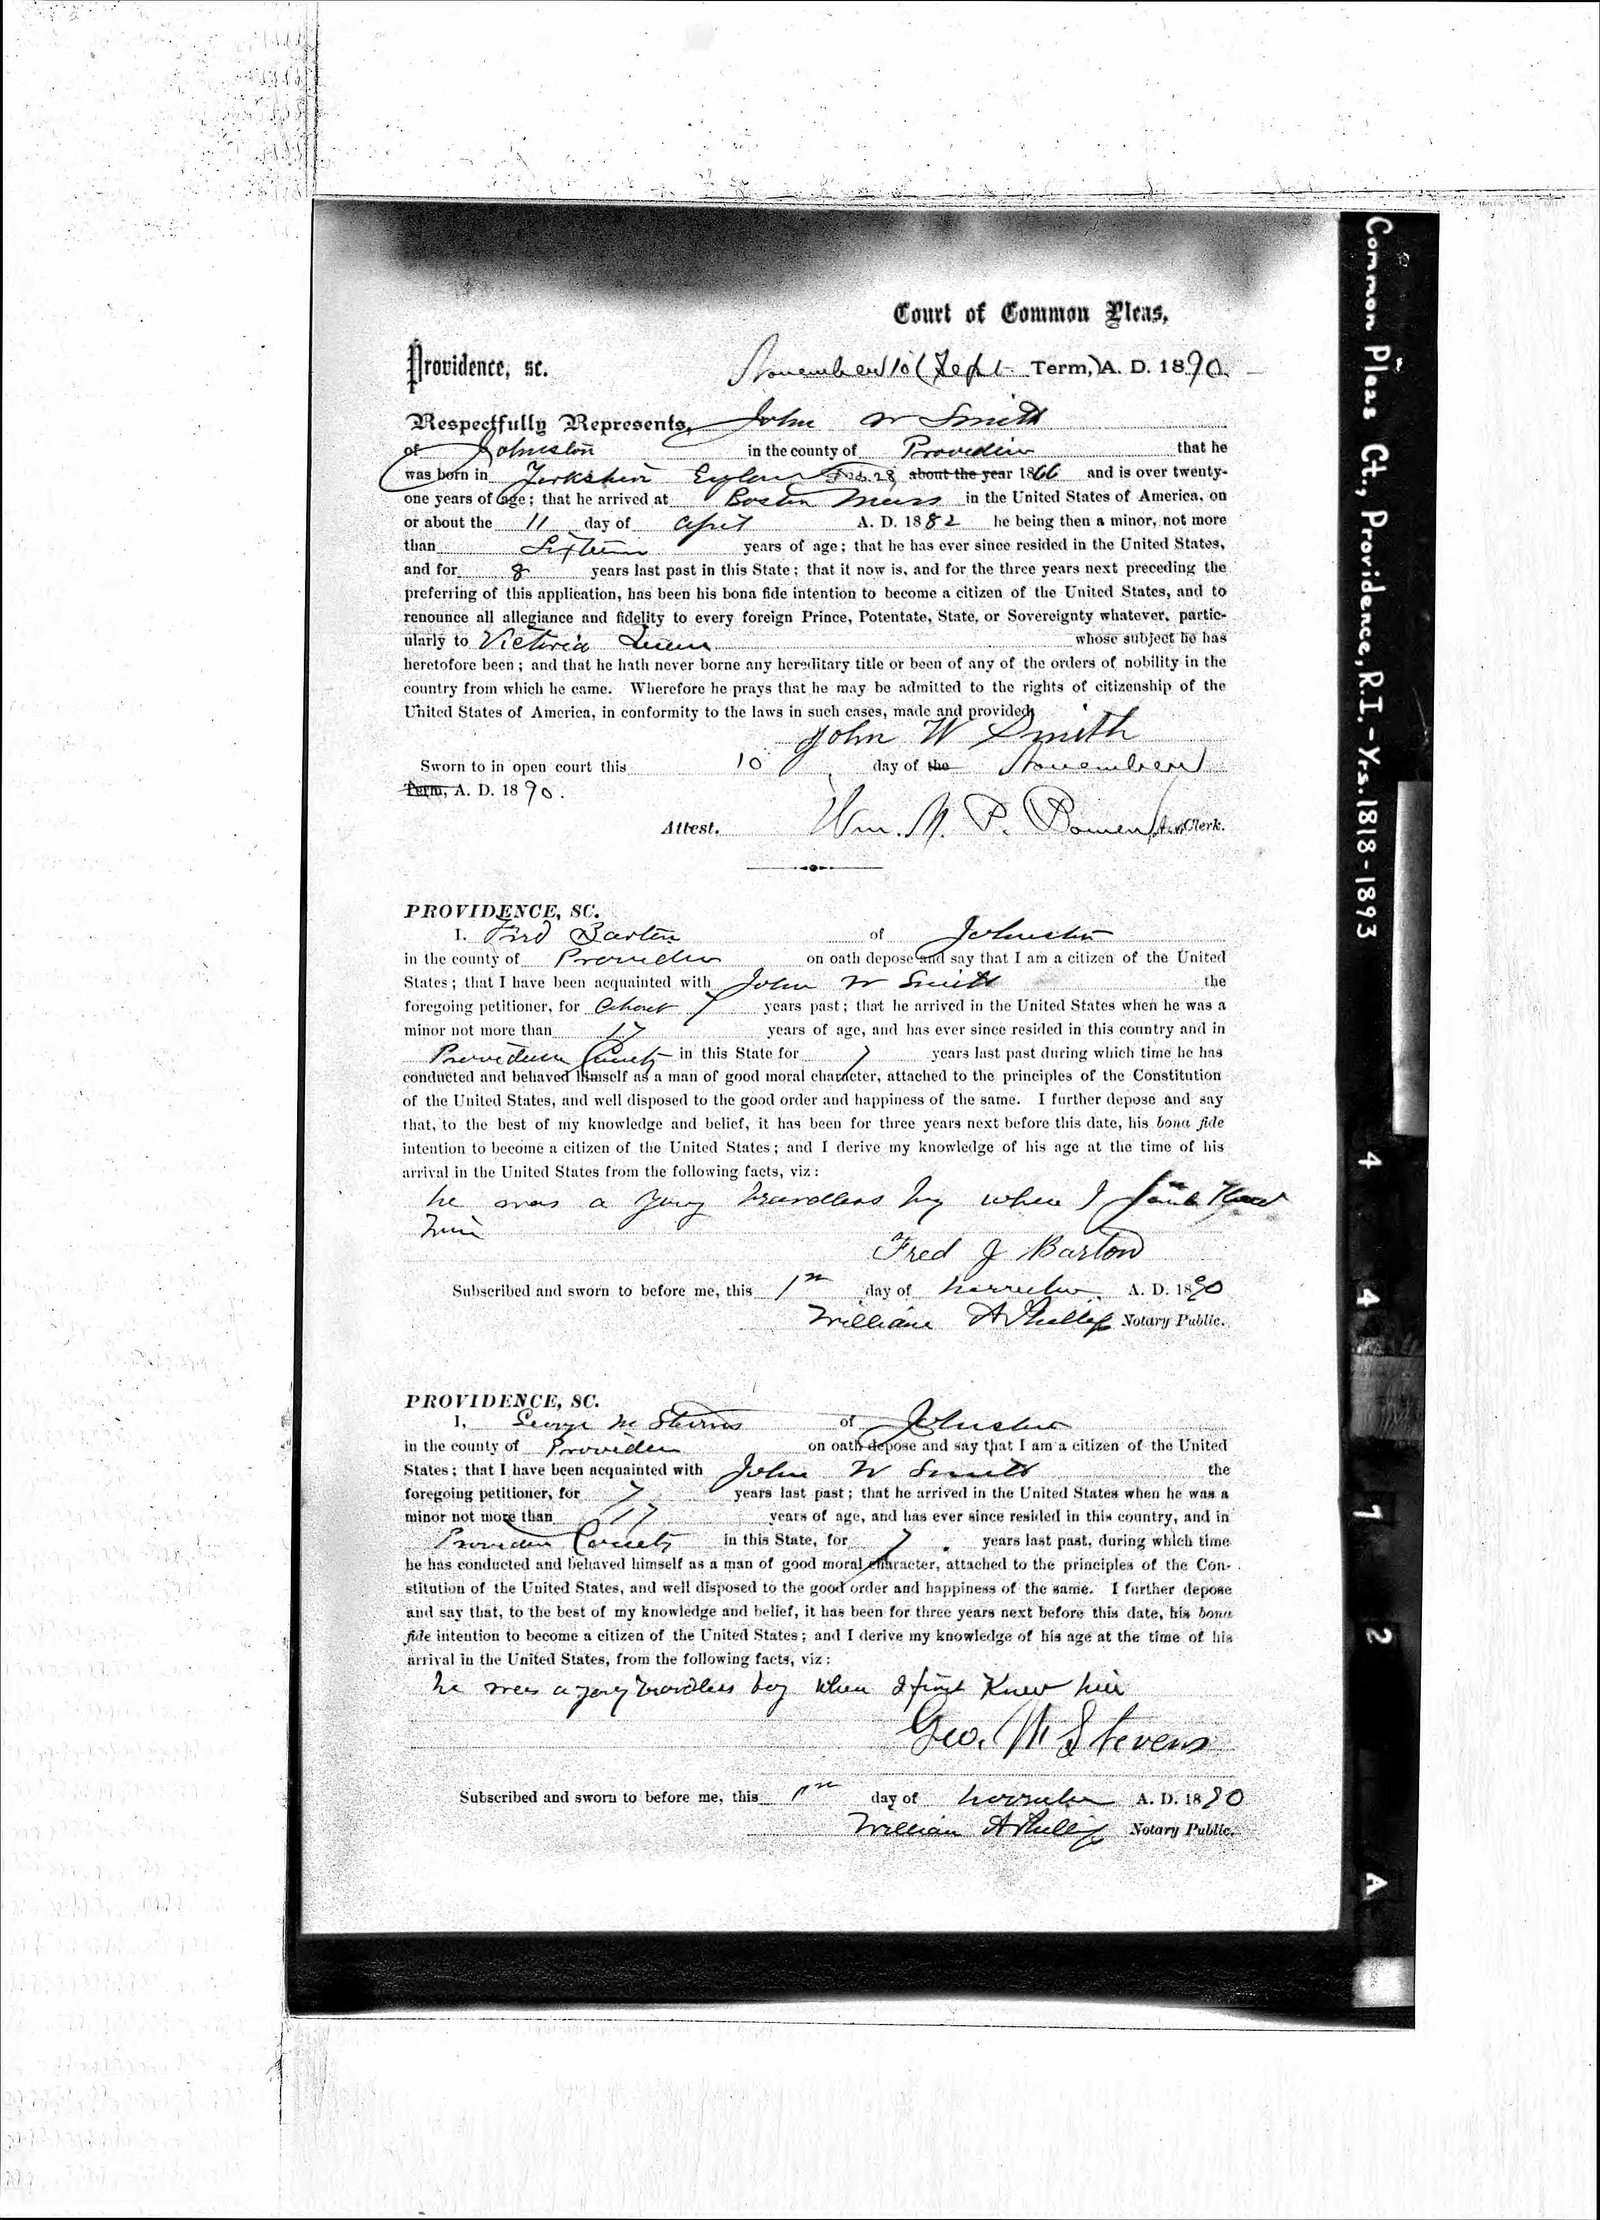 Court of Common Pleas,
Providence, sc. November 10 (Sept Term,) A. D. 1890.
Respectfully Represents, John W Smith
of Johnston in the county of Providence that he
was born in Yorkshire England Feb 28 about the year 1866 and is over twenty-
one years of age; that he arrived at Boston Mass in the United States of America, on
or about the 11 day of April A. D. 1882 he being then a minor, not more
than Sixteen years of age; that he has ever since resided in the United States,
and for 8 years last past in this State; that it now is, and for the three years next preceding the
preferring of this application, has been his bona fide intention to become a citizen of the United States, and to
renounce all allegiance and fidelity to every foreign Prince, Potentate, State, or Sovereignty whatever, partic-
ularly to Victoria Queen whose subject he has
heretofore been; and that he hath never borne any hereditary title or been of any of the orders of nobility in the
country from which he came. Wherefore he prays that he may be admitted to the rights of citizenship of the
United States of America, in conformity to the laws in such cases, made and provided.
John W Smith
Sworn to in open court this 10 day of the November
Term, A. D. 1890.
Attest, Wm. M. P. Bowen Clerk.
PROVIDENCE, SC.
I, Fred Barton of Johnston
in the county of Providence on oath depose and say that I am a citizen of the United
States; that I have been acquainted with John W Smith the
foregoing petitioner, for about 7 years past; that he arrived in the United States when he was a
minor not more than 17 years of age, and has ever since resided in this country and in
Providence County in this State for 7 years last past during which time he has
conducted and behaved himself as a man of good moral character, attached to the principles of the Constitution
of the United States, and well disposed to the good order and happiness of the same. I further depose and say
that, to the best of my knowledge and belief, it has been for three years next before this date, his bona fide
intention to become a citizen of the United States; and I derive my knowledge of his age at the time of his
arrival in the United States from the following facts, viz:
he was a young beardless boy when I first Knew
him
Fred J Barton
Subscribed and sworn to before me, this 1st day of November A. D. 1890
William A Phillips Notary Public.
PROVIDENCE, SC.
I, George M Stevens of Johnston
in the county of Providence on oath depose and say that I am a citizen of the United
States; that I have been acquainted with John W Smith the
foregoing petitioner, for 7 years last past; that he arrived in the United States when he was a
minor not more than 17 years of age, and has ever since resided in this country, and in
Providence County in this State, for 7 years last past, during which time
he has conducted and behaved himself as a man of good moral character, attached to the principles of the Con-
stitution of the United States, and well disposed to the good order and happiness of the same. I further depose
and say that, to the best of my knowledge and belief, it has been for three years next before this date, his bona
fide intention to become a citizen of the United States; and I derive my knowledge of his age at the time of his
arrival in the United States, from the following facts, viz:
he was a young beardless boy when I first Knew him
Geo. M Stevens
Subscribed and sworn to before me, this 1st day of November A. D. 1890
William A Phillips Notary Public.
Common Pleas Ct., Providence, R.I.-Yrs. 1818-1893
4 4 1 2 A